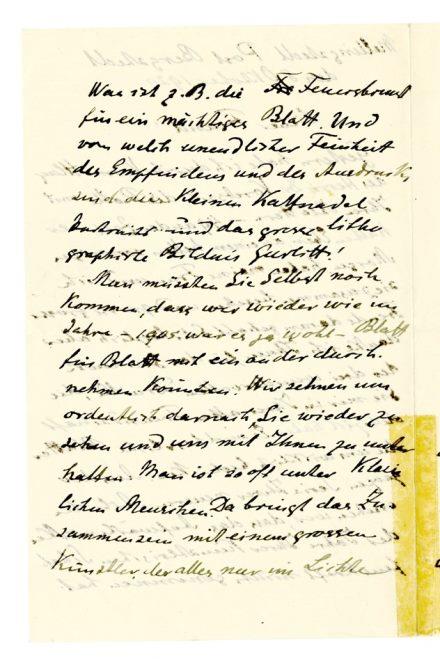 Was ist z. B. die Feuersbrunst
für ein mächtiges Blatt. Und
von welch unendlicher Feinheit
des Empfindens und des Ausdrucks
sind die Kleinen Kaltnadel
und das grosse litho
graphirte Bildnis Gurlitt!
Nun müssten Sie Selbst noch
Kommen, dass wir wieder wie im
Jahre – 1905 war es ja wohl – Blatt
für Blatt mit einander durch
nehmen Könnten. Wir sehnen uns
ordentlich darnach, Sie wieder zu
sehen und uns mit Ihnen zu unter
halten. Man ist so oft unter Klein
lichen Menschen. Da bringt das Zu-
sammensein mit einem grossen
Künstler, der alles nur im Lichte